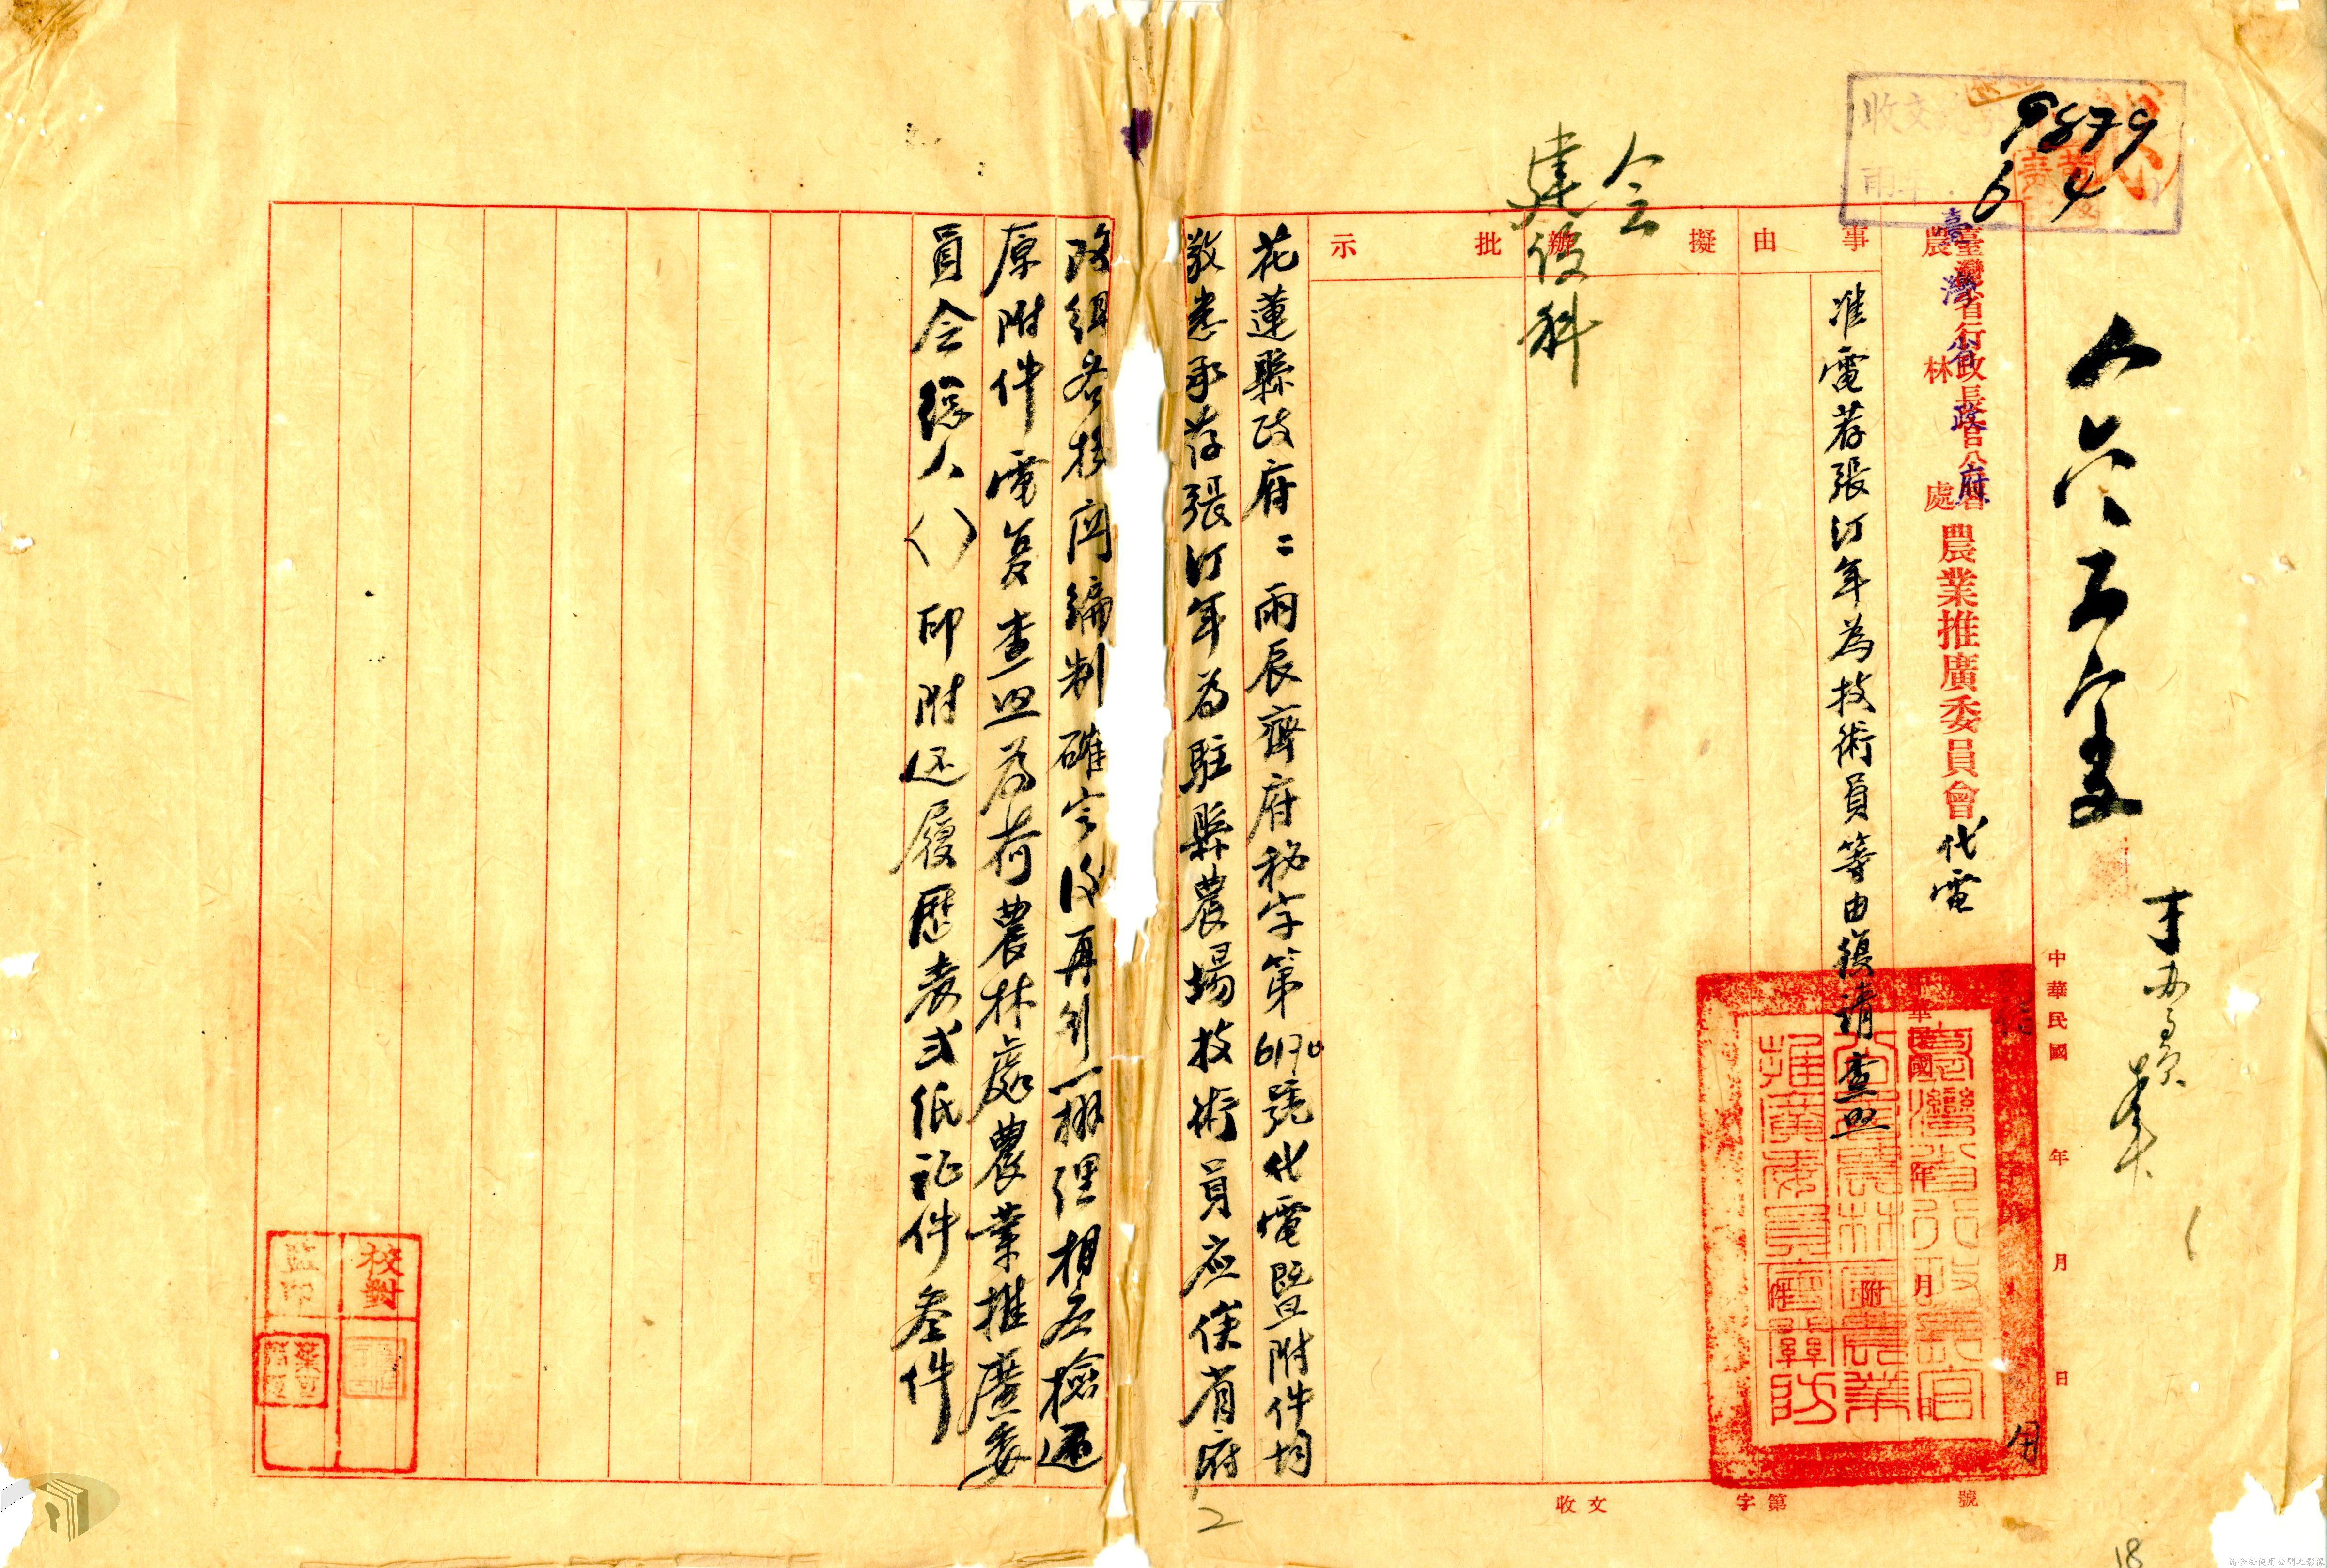 9879
6 4
收文
人六五
臺灣省政府
臺灣省行政長官公署
農林處
農業推廣委員會代電
中華民國 年 月 日
事由
准電荐張汀年為技術員等由復請查照
擬辦
會
建設科
批示
花蓮縣政府：兩辰齊府秘字第6170號代電暨附件均
敬悉承荐張汀年為駐縣農場技術員應俟省府
改組各機關編制確定後再引辦理相應檢還
原附件電复查照為荷農林處農業推廣委
員会總人（）印附还履歷表弍纸证件叁件
臺灣省行政長官公署農林處農業推廣委員會關防
附件
收文 字第 號
校對
監印
2
18
請合法使用公開之影像